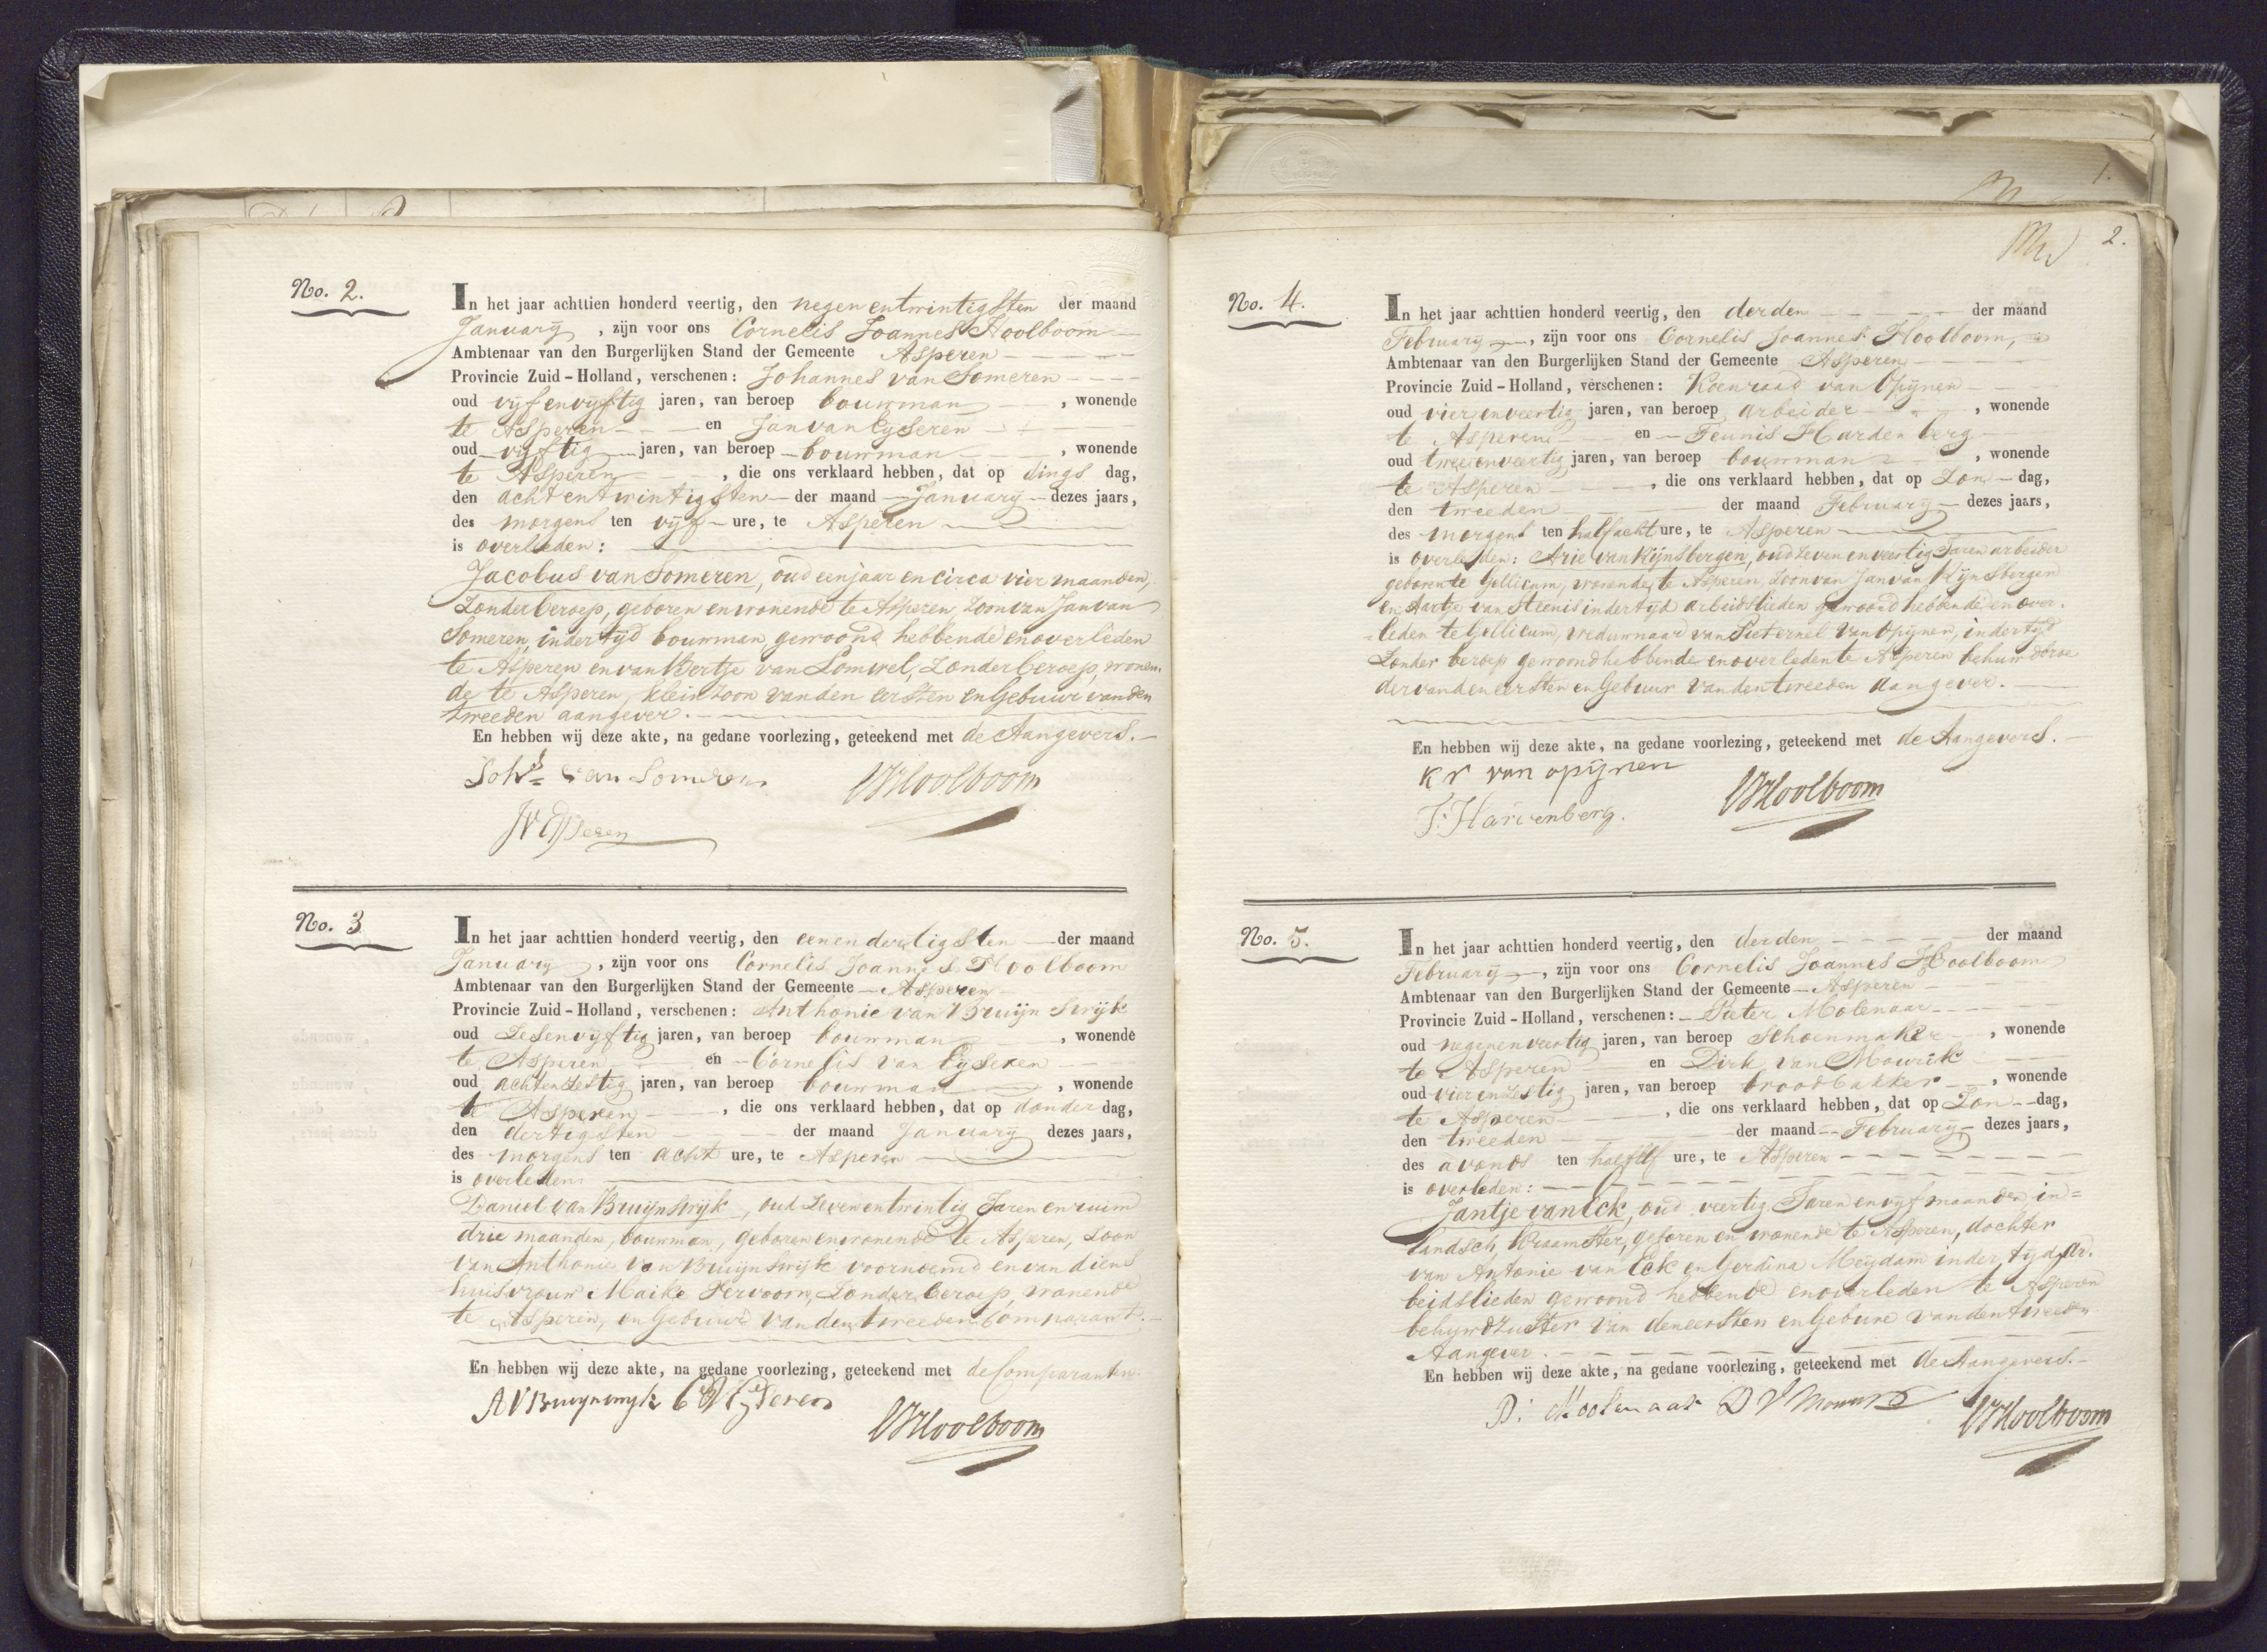 No. 2.
In het jaar achttien honderd veertig, den negen entwintigsten der maand
January, zijn voor ons Cornelis Joannes Hoolboom
Ambtenaar van den Burgerlijken Stand der Gemeente Asperen
Provincie Zuid-Holland, verschenen: Johannes van Someren
oud vyf en vyftig jaren, van beroep bouwman, wonende
te Asperen en Jan van Eyseren
oud vyftig jaren, van beroep bouwman, wonende
te Asperen, die ons verklaard hebben, dat op dings dag,
den acht entwintigsten der maand January dezes jaars,
des morgens ten vyf ure, te Asperen
is overleden:
Jacobus van Someren, oud een jaar en circa vier maanden,
Zonder beroep, geboren en wonende te Asperen, Zoon van Jan van
Someren, in der tyd bouwman, gewoond hebbende en overleden
te Asperen en van Bertje van Lomwel, Zonder beroep, wonen.
de te Asperen, klein Zoon van den eersten en Gebuur van den
tweeden aangever.
En hebben wij deze akte, na gedane voorlezing, geteekend met de Aangevers.
Johs van Someren CJHoolboom
JVEyseren
No. 3
In het jaar achttien honderd veertig, den eenendertigsten der maand
January, zijn voor ons Cornelis Joannes Hoolboom
Ambtenaar van den Burgerlijken Stand der Gemeente Asperen
Provincie Zuid-Holland, verschenen: Anthonie van Bruijnswijk
oud Zesenvyftig jaren, van beroep bouwman, wonende
te Asperen en Cornelis van Eyseren
oud achtenzestig jaren, van beroep bouwman, wonende
te Asperen, die ons verklaard hebben, dat op donder dag,
den dertigsten der maand January dezes jaars,
des morgens ten acht ure, te Asperen
is overleden:
Daniel van Bruijnswijk, oud Zevenentwintig Jaren en ruim
drie maanden, bouwman, geboren en wonende te Asperen, Zoon
van Anthonie van Bruijnswijk voornoemd en van diens
huisvrouw Maike Vervoorn, Zonder beroep, wonende
te Asperen, en Gebuur van den tweeden Comparant.
En hebben wij deze akte, na gedane voorlezing, geteekend met de Comparanten.
AVBruynswyk CVEyseren
CJHoolboom
1.
2.
No. 4.
In het jaar achttien honderd veertig, den derden der maand
February, zijn voor ons Cornelis Joannes Hoolboom,
Ambtenaar van den Burgerlijken Stand der Gemeente Asperen
Provincie Zuid-Holland, verschenen: Koenraad van Opijnen
oud vier en veertig jaren, van beroep arbeider, wonende
te Asperen en Teunis Hardenberg
oud tweeenveertig jaren, van beroep bouwman, wonende
te Asperen, die ons verklaard hebben, dat op Zon dag,
den tweeden der maand February dezes jaars,
des morgens ten half acht ure, te Asperen
is overleden: Arie van Rijnsbergen, oud Zeven en veertig Jaren arbeider
geboren te Gellicum, wonende te Asperen, Zoon van Jan van Rijnsbergen
en Aartje van Steenis in der tyd arbeidslieden gewoond hebbende en over.
leden te Gellicum, weduwnaar van Pieternel van Opijnen, in der tyd
Zonder beroep gewoond hebbende en overleden te Asperen behuwdbroe
der van den eersten en Gebuur van den tweeden aangever.
En hebben wij deze akte, na gedane voorlezing, geteekend met de Aangevers.
Kr van opijnen
T. Hardenberg. CJHoolboom
No. 5.
In het jaar achttien honderd veertig, den derden der maand
February, zijn voor ons Cornelis Joannes Hoolboom
Ambtenaar van den Burgerlijken Stand der Gemeente Asperen
Provincie Zuid-Holland, verschenen: Pieter Molenaar
oud negenenveertig jaren, van beroep Schoenmaker, wonende
te Asperen en Dirk van Mourik
oud vier en Zestig jaren, van beroep broodbakker, wonende
te Asperen, die ons verklaard hebben, dat op Zon dag,
den tweeden der maand February dezes jaars,
des avonds ten half elf ure, te Asperen
is overleden:
Jantje van Eck, oud veertig Jaren en vyf maanden, in=
landsch Kraamster, geboren en wonende te Asperen, dochter
van Antonie van Eck en Gerdina Meydam in der tyd ar.
beidslieden gewoond hebbende en overleden te Asperen
behuwdzuster van den eersten en Gebure van den tweeden
Aangever.
En hebben wij deze akte, na gedane voorlezing, geteekend met de Aangevers.
P: Moolenaar D V Mourik CJHoolboom